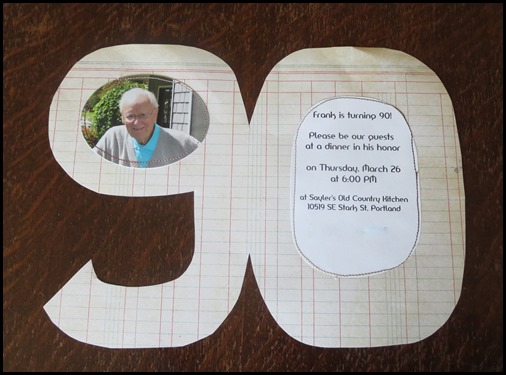 Frank is turning 90!
Please be our guests
at a dinner in his honor
on Thursday, March 26
at 6:00 PM
at Sayler's Old Country Kitchen
10519 SE Stark St, Portland